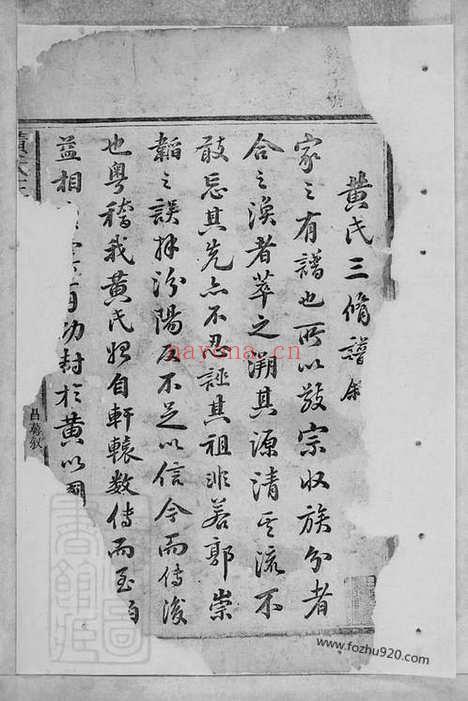 黄氏三脩譜叙
家之有譜也所以敬宗收族分者
合之渙者萃之溯其源清其流不
敢忘其先亦不忍誣其祖非若郭崇
韜之誤拜汾陽反不足以信今而傳後
也粤稽我黄氏始自軒轅数傳而至伯
益相
有功封於黄以國
昌蔚叙
nayona.cn
www.fozhu920.com